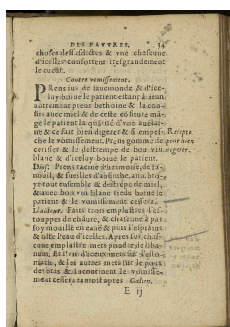 DES PAVVRES. 34
choses dessusdictes & vne chascune
d'icelles confortent tresgrandement
le cueur.
Contre vomissement.
PRens ius de &
le patient estant à ieun,
autrement preus bethoine & la con-
fis auec miel & de ceste cõfiture mã-
ge le patient la quãtité d'vne auelai-
ne & ce fait bien digerer & si empes-
che le vomissement. Prens gomme de
cerisier & le destrempe de bon vin
blanc & d'iceluy boiue le patient.
Recepte
pour bien
digerer.
Dios. Prens racine de
& fueilles
ye tout ensemble & destrẽpe de miel,
& auec bon vin blanc tiede boiue le
patient & le vomissement cessera.
Faits trois emplastres d'es-
touppes de chanure, & chascune à par
soy mouille en eau & puis l'espraint
& vse l'eau dicelles. Apres sus chas-
cune emplastre mets pouldre de liba-
num, Et l'vn d'iceux mets sur l'esto-
mach, & les autres mets sur le pouls
des bras & incontinent le vomisse-
ment cessera tantost apres Galien.
E ij